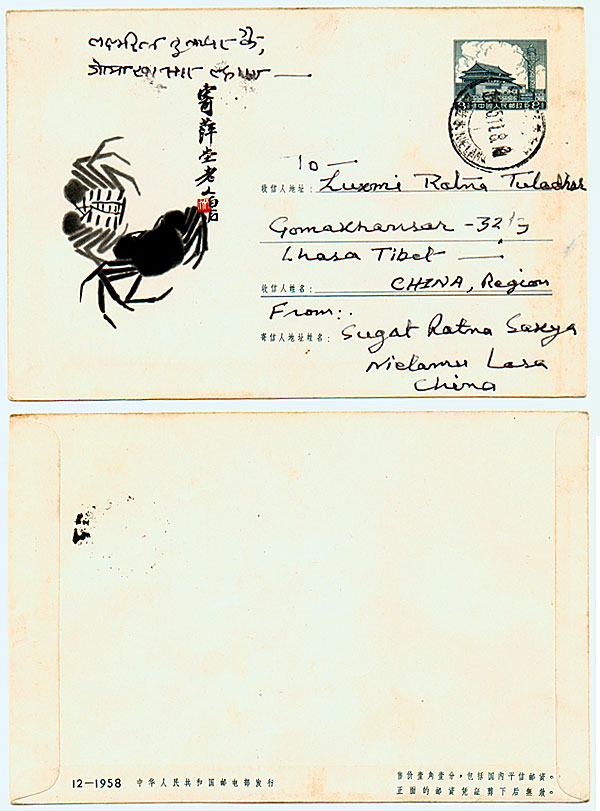 寄萍堂老
中国人民邮政
To —
收信人地址:
Luxmi Ratna Tuladhar
Gomakhansar - 32
Lhasa Tibet —
收信人姓名:
CHINA, Region
From:.
寄信人地址姓名:
Sugat Ratna Sakya
Nielamu Lasa
China
12—1958 中华人民共和国邮电部发行
售价壹角壹分，包括国内平信邮资。
正面的邮资凭证剪下后无效。